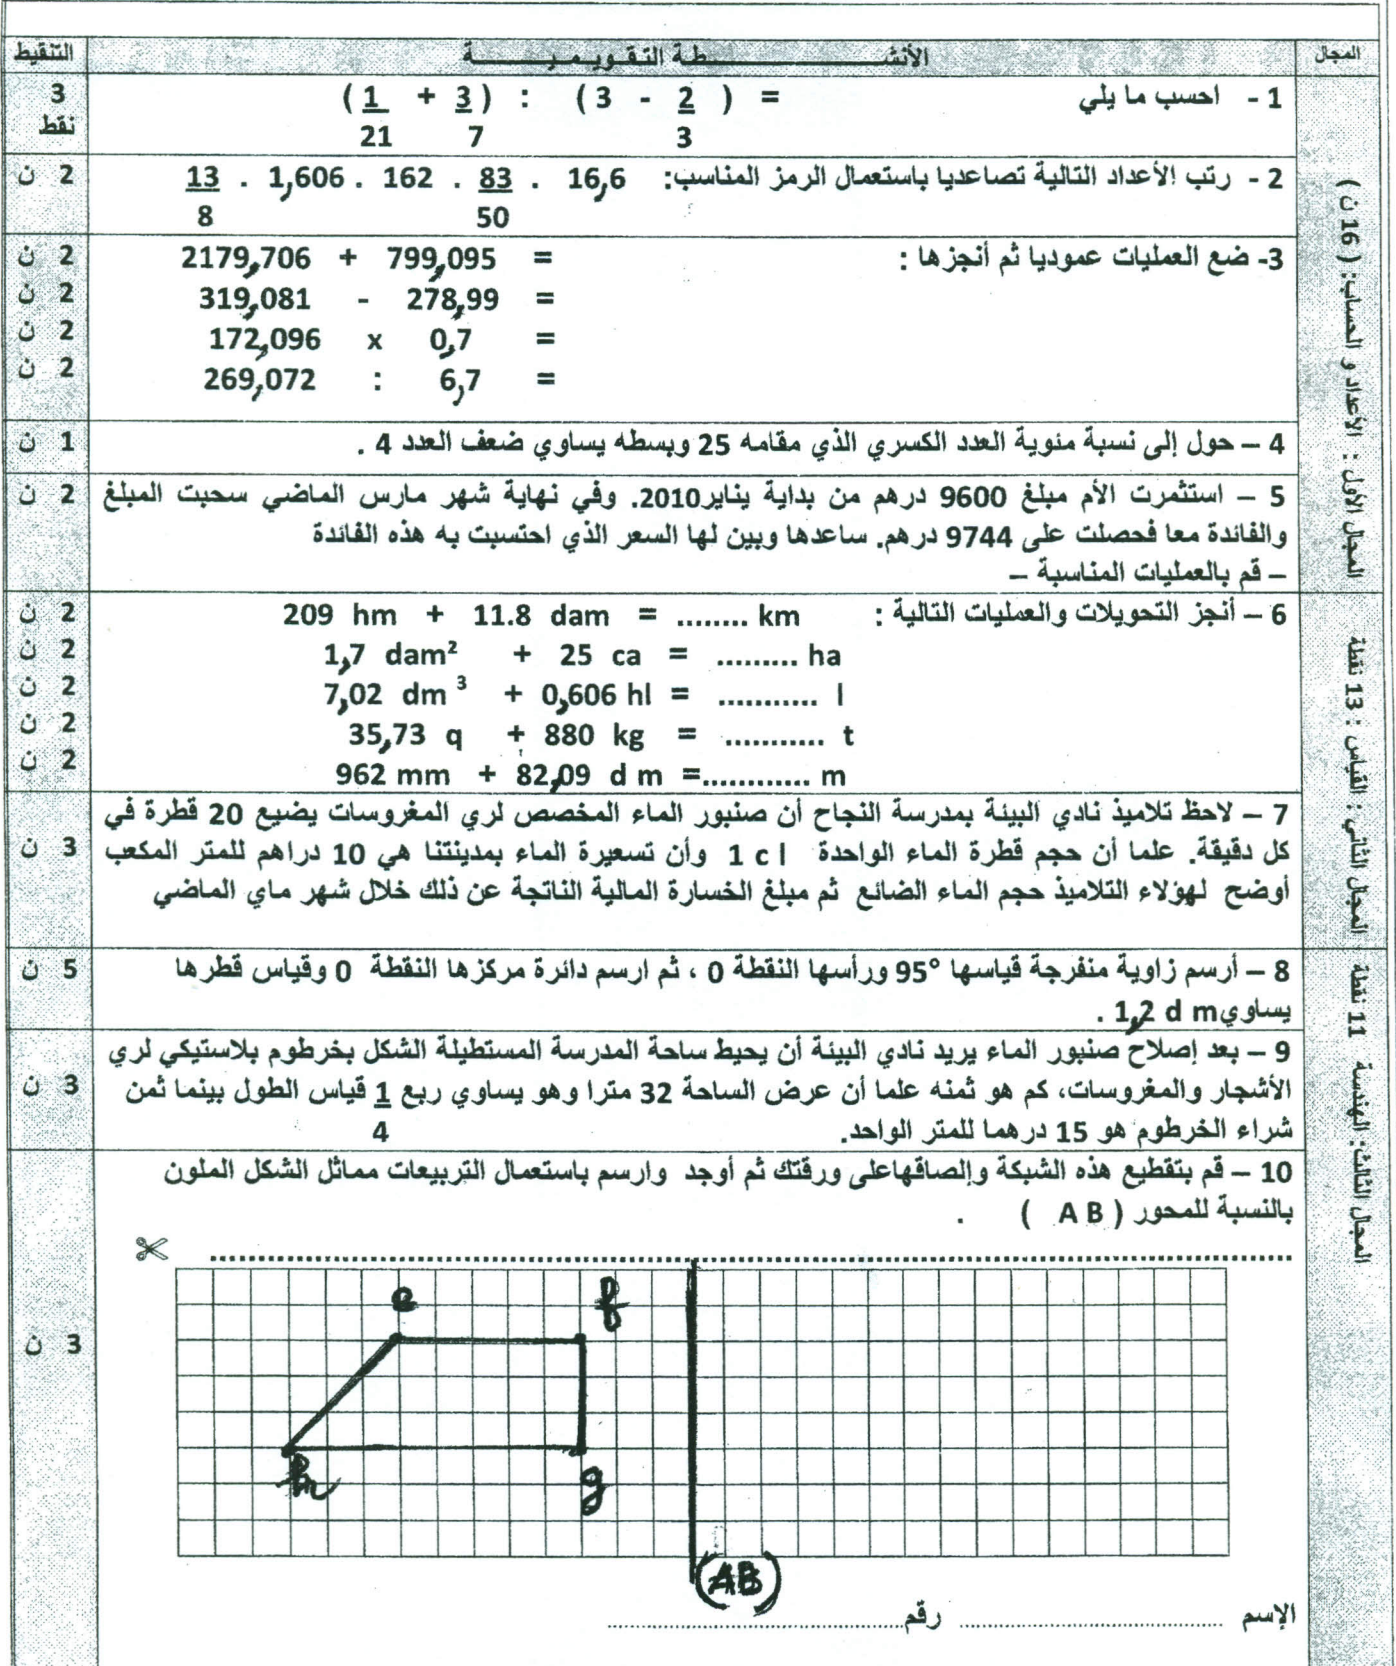 المجال الأنشـــطة التقـويـمـيـــة التنقيط
1 - احسب ما يلي ( 1 + 3 ) : ( 3 - 2 ) = 3
21 7 3 نقط
2 - رتب الأعداد التالية تصاعديا باستعمال الرمز المناسب: 16,6 . 83 . 162 . 1,606 . 13 2 ن
50 8
3- ضع العمليات عموديا ثم أنجزها :
2179,706 + 799,095 = 2 ن
319,081 - 278,99 = 2 ن
172,096 x 0,7 = 2 ن
269,072 : 6,7 = 2 ن
4 – حول إلى نسبة مئوية العدد الكسري الذي مقامه 25 وبسطه يساوي ضعف العدد 4 . 1 ن
5 – استثمرت الأم مبلغ 9600 درهم من بداية يناير2010. وفي نهاية شهر مارس الماضي سحبت المبلغ 2 ن
والفائدة معا فحصلت على 9744 درهم. ساعدها وبين لها السعر الذي احتسبت به هذه الفائدة
– قم بالعمليات المناسبة –
المجال الأول : الأعداد و الحساب: ( 16 ن )
6 – أنجز التحويلات والعمليات التالية :
209 hm + 11.8 dam = ........ km 2 ن
1,7 dam² + 25 ca = ......... ha 2 ن
7,02 dm ³ + 0,606 hl = ........... l 2 ن
35,73 q + 880 kg = ........... t 2 ن
962 mm + 82,09 d m =............ m 2 ن
7 – لاحظ تلاميذ نادي البيئة بمدرسة النجاح أن صنبور الماء المخصص لري المغروسات يضيع 20 قطرة في
كل دقيقة. علما أن حجم قطرة الماء الواحدة 1 c l وأن تسعيرة الماء بمدينتنا هي 10 دراهم للمتر المكعب 3 ن
أوضح لهؤلاء التلاميذ حجم الماء الضائع ثم مبلغ الخسارة المالية الناتجة عن ذلك خلال شهر ماي الماضي
المجال الثاني : القياس : 13 نقطة
8 – أرسم زاوية منفرجة قياسها 95° ورأسها النقطة 0 ، ثم ارسم دائرة مركزها النقطة 0 وقياس قطرها 5 ن
يساوي1,2 d m .
9 – بعد إصلاح صنبور الماء يريد نادي البيئة أن يحيط ساحة المدرسة المستطيلة الشكل بخرطوم بلاستيكي لري
الأشجار والمغروسات، كم هو ثمنه علما أن عرض الساحة 32 مترا وهو يساوي ربع 1 قياس الطول بينما ثمن 3 ن
شراء الخرطوم هو 15 درهما للمتر الواحد. 4
10 – قم بتقطيع هذه الشبكة وإلصاقهاعلى ورقتك ثم أوجد وارسم باستعمال التربيعات مماثل الشكل الملون
بالنسبة للمحور ( A B ) .
المجال الثالث: الهندسة 11 نقطة
e f
3 ن
h g
(AB)
الإسم ........................................ رقم........................................